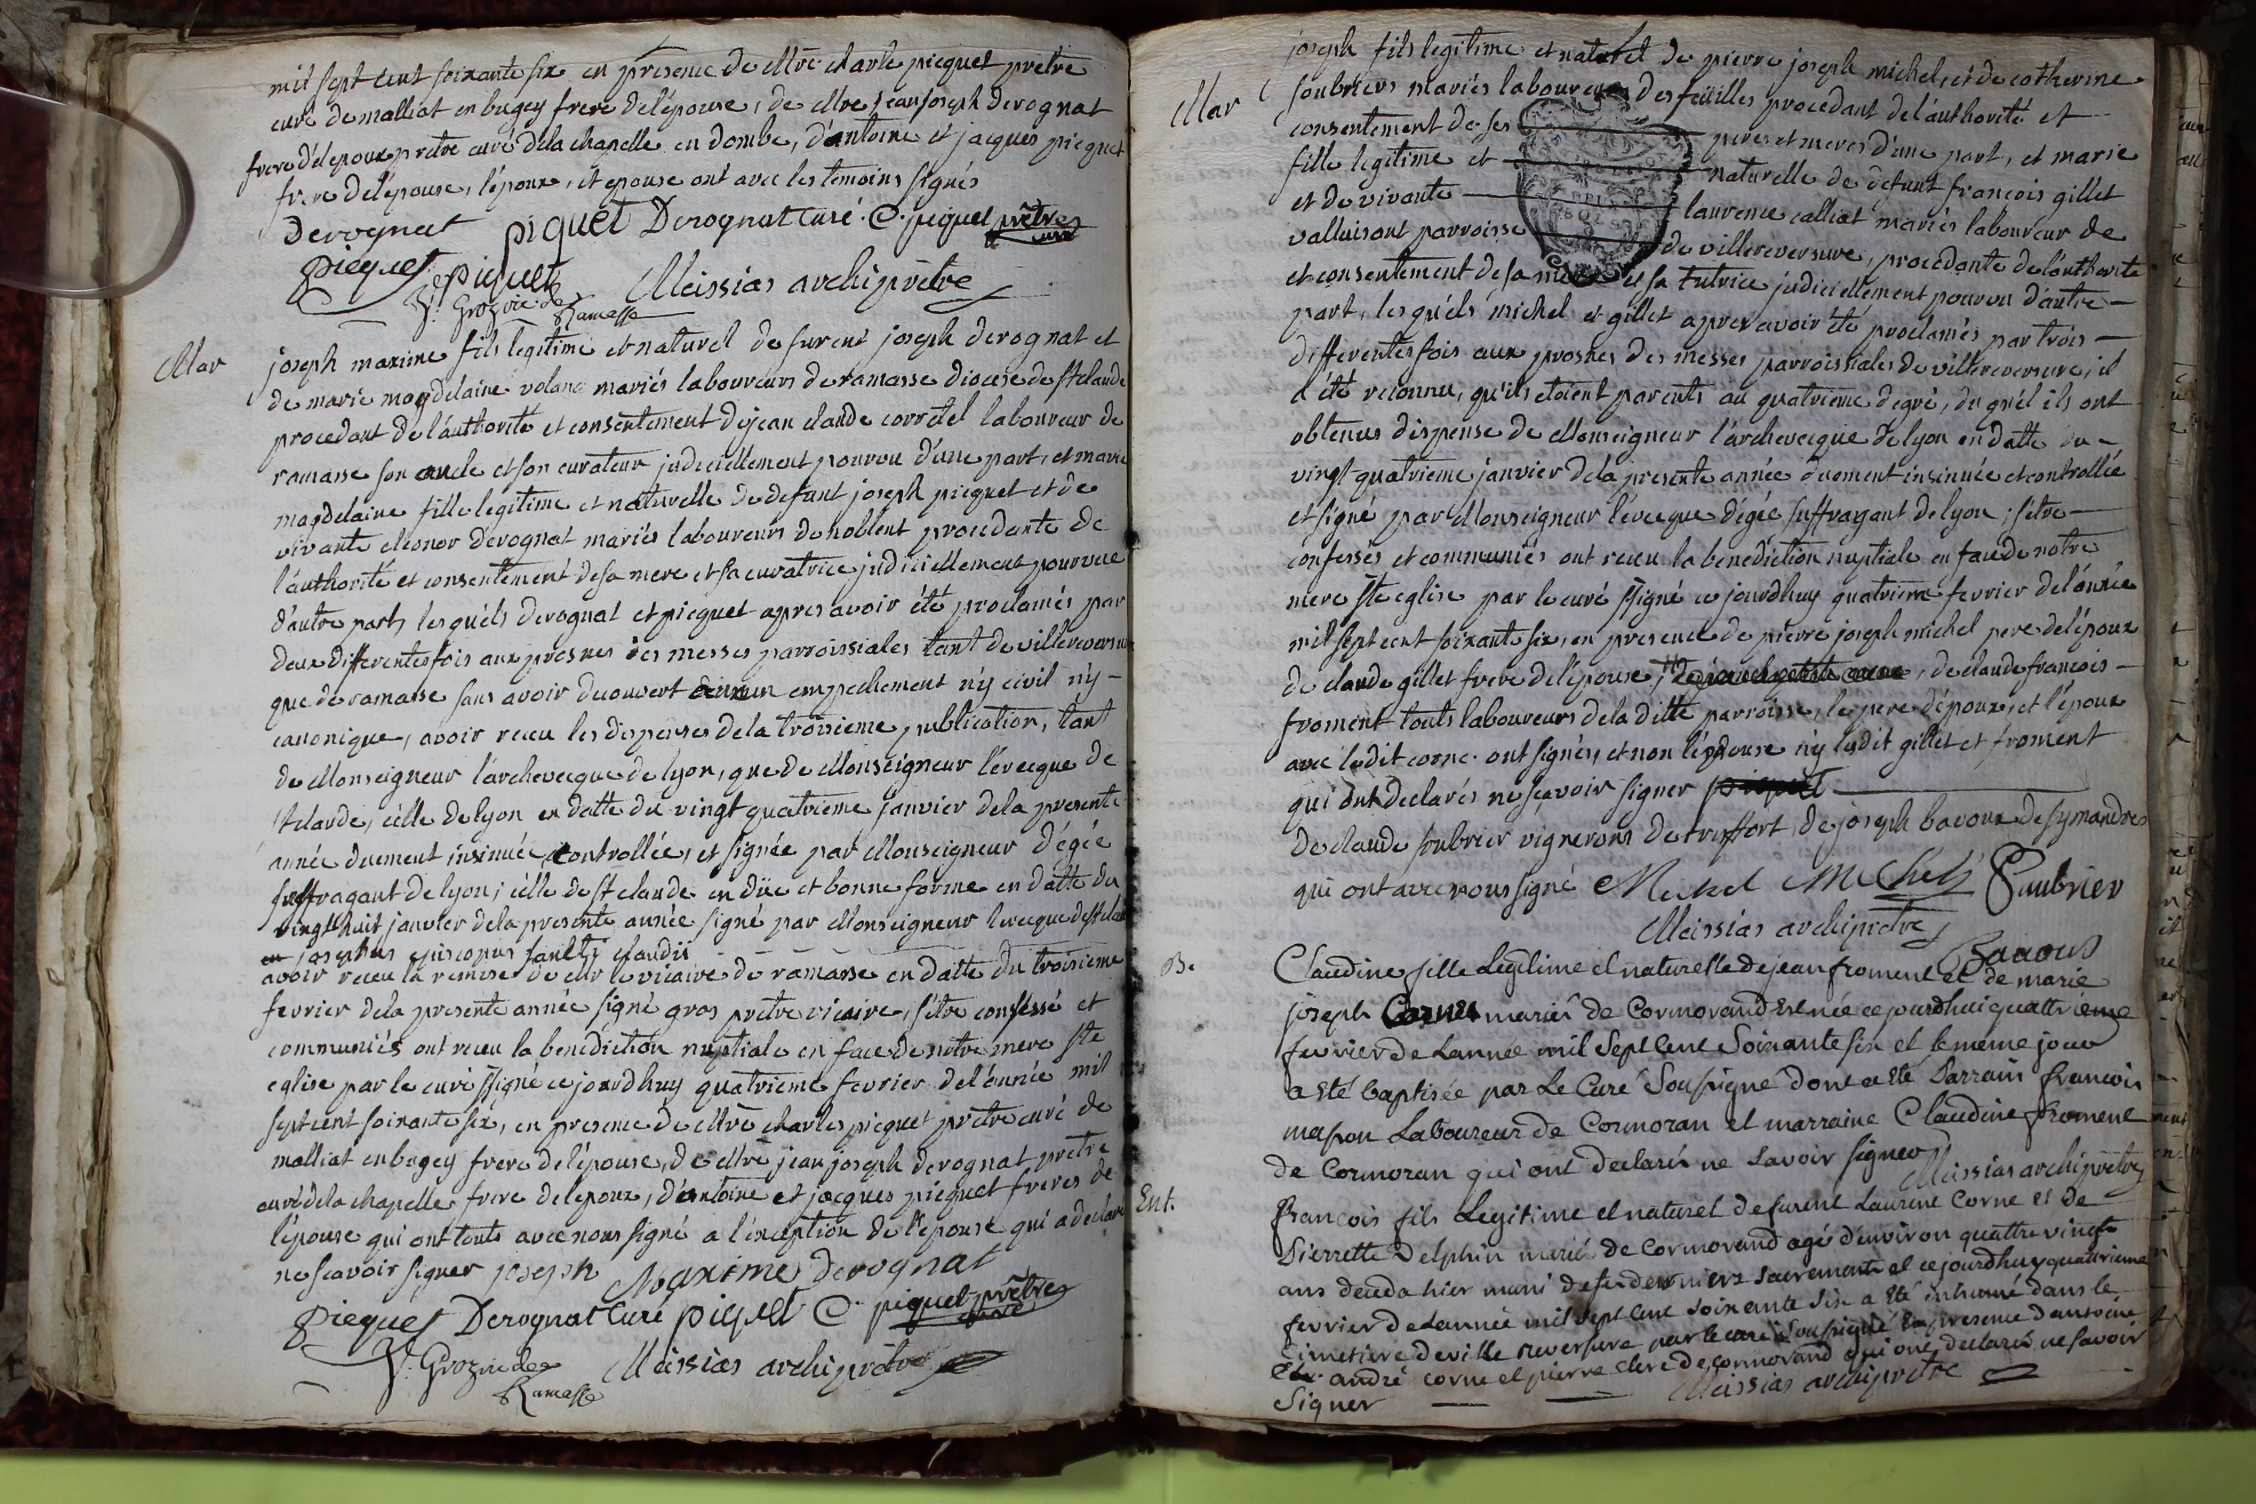 mil sept cent soixante six en présence de Mre charle picquet pretre
curé de malliat en bugey frere de l'épouse, de Mre jean joseph derognat
frere de l'epoux pretre curé de la chapelle en dombe, d'antoine et jacques picquet
frere de l'épouse, l'époux, et epouse ont avec les temoins signés
Derognat piquet Derognat curé. C. piquet prêtre
curé
Picquet piquet Meissias archiprêtre
J. Groz vic. de
Ramasse
Mar
joseph maxime fils legitime et naturel de furent joseph derognat et
de marie magdelaine volano mariés laboureurs de ramasse diocese de st claude
procedant de l'authorité et consentement de jean claude corretel laboureur de
ramasse son oncle et son curateur judiciellement pourvu d'une part, et marie
magdelaine fille legitime et naturelle de defunt joseph picquet et de
vivante eleonor derognat mariés laboureurs de noblent procedante de
l'authorité et consentement de sa mere et sa curatrice judiciellement pourvue
d'autre part, lesquéls derognat et picquet apres avoir été proclamés par
deux differentes fois aux prosnes des messes parroissiales tant de villereversure
que de ramasse sans avoir decouvert aucun empechement n'y civil n'y -
canonique, avoir receu les dispenses de la troisieme publication, tant
de Monseigneur l'archevecque de lyon, que de Monseigneur l'évecque de
st claude, célle de lyon en datte du vingt quatrieme janvier de la presente
année duement insinuée controllée, et signée par Monseigneur d'égée
suffragant de lyon; célle de st claude en düe et bonne forme en datte du
vingt huit janvier de la presente année signé par Monseigneur l'evecque de st claude
josephus episcopus sancti claudii
avoir receu la remise de sur le vicaire de ramasse en datte du troisieme
fevrier de la presente année signé gros prêtre vicaire, s'être confessé et
communiés ont receu la benediction nuptiale en face de notre mere ste
eglise par le curé ssigné ce jourdhuy quatrieme fevrier de l'année mil
sept cent soixante six, en presence de Mre charles picquet prêtre curé de
malliat en bugey frere de l'épouse, de Mre jean joseph derognat pretre
curé de la chapelle frere de l'epoux, d'antoine et jacques picquet freres de
l'épouse qui ont touts avec nous signé a l'exception de l'epouse qui a declaré
ne scavoir signer joseph Maxime derognat
Picquet Derognat curé piquet C. piquet prêtre
curé
J. Groz vic de
Ramasse Meissias archiprêtre
Mar
joseph fils legitime et naturel de pierre joseph michel, et de catherine
soubriers mariés laboureurs des feuilles procedant de l'authorité et
consentement de ses peres et meres d'une part, et marie
fille legitime et naturelle de defunt françois gillet
et de vivante laurence calliat mariés laboureur de
valluisant parroisse de villereversure, procedante de l'authorité
et consentement de sa mere et sa tutrice judiciellement pourvu d'autre -
part, lesquéls michel et gillet apres avoir été proclamés par trois -
differentes fois aux prosnes des messes parroissiales de villereversure, il
a été reconnu, qu'ils etoient parents au quatrieme degré, du quél ils ont
obtenus dispense de Monseigneur l'archevecque de lyon en datte du -
vingt quatrieme janvier de la presente année duement insinuée et controllée
et signé par Monseigneur l'évecque d'égée suffragant de lyon; s'étre -
confessés et communiés ont receu la benediction nuptiale en face de notre
mere ste eglise par le curé ssigné ce jourdhuy quatrieme fevrier de l'année
mil sept cent soixante six, en presence de pierre joseph michel pere de l'époux
de claude gillet frere de l'épouse, de claude françois -
froment touts laboureurs de la ditte parroisse, le pere d'époux, et l'époux
avec ledit corne ont signés, et non l'épouse n'y ledit gillet et froment
qui ont declarés ne scavoir signer
de claude soubrier vigneron de treffort, de joseph bavoux de symandres
qui ont avec nous signé Michel Michel Saubrier
Meissias archiprêtre
Bavous
B.
Claudine fille Legitime et naturelle de jean froment et de marie
joseph Corne mariés de Cormorand est née ce jourdhui quattrieme
fevrier de Lannée mil Sept Cent Soixante six et le meme jour
a Eté baptisée par Le Curé Soussigné dont a Eté Parrain francois
masson Laboureur de Cormoran et marraine Claudine froment
de Cormoran qui ont declarés ne savoir signer
Meissias archiprêtre
Ent.
francois fils Legitime et naturel defurent Laurent Corne et de
Pierrette Delphin mariés de Cormorand agé d'environ quattre vingts
ans deceda hier muni de ses derniers sacrements et ce jourdhuy quatrieme
fevrier de Lannée mil sept cent soixante six a Eté inhumé dans le
cimetiere de ville reversure par le curé soussigné En presence d'antoine
andré corne et pierre clerc de cormorand qui ont declarés ne savoir
Signer Meissias archiprêtre